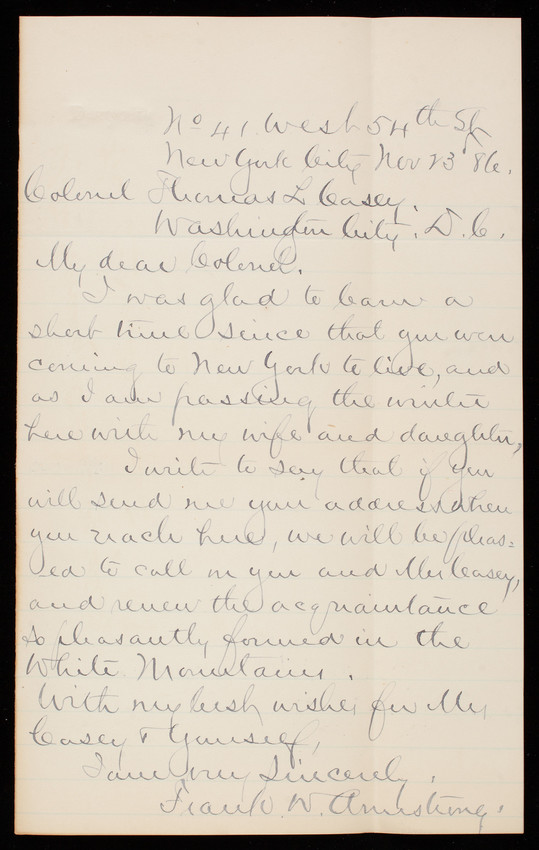 No 41 West 54th St
New York City Nov 23 '86.
Colonel Thomas L Casey.
Washington City. D. C.
My dear Colonel.
I was glad to learn a
short time since that you were
coming to New York to live, and
as I am passing the winter
here with my wife and daughter,
I write to say that if you
will send me your address when
you reach here, we will be pleas=
ed to call on you and Mrs Casey,
and renew the acquaintance
so pleasantly formed in the
White Mountains.
With my best wishes for Mrs
Casey & Yourself,
I am very Sincerely.
Frank. W. Armstrong.